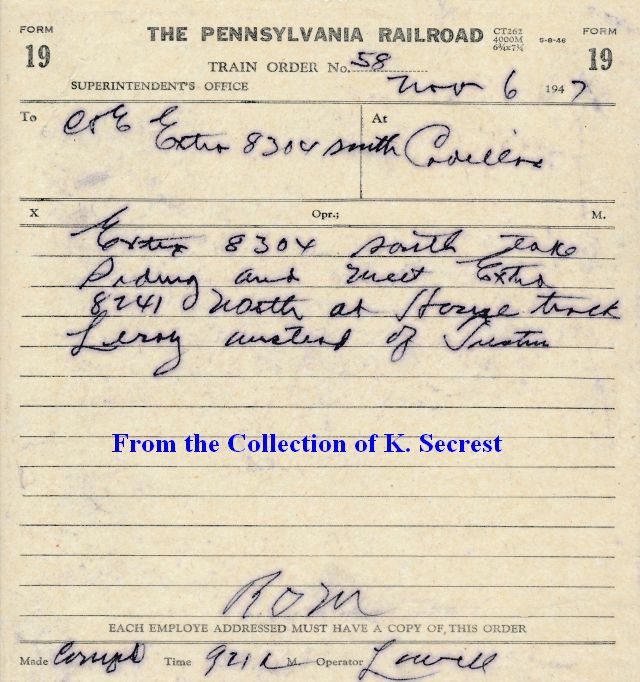 FORM 19
THE PENNSYLVANIA RAILROAD
CT262
4000M
6¾x7¾
5-8-46
FORM 19
TRAIN ORDER No. 58
SUPERINTENDENT'S OFFICE
Nov 6 1947
To C&E Extra 8304 south
At Cadillac
X Opr.; M.
Extra 8304 south take
siding and meet Extra
8241 North at House track
Leroy instead of Tustin
From the Collection of K. Secrest
EACH EMPLOYE ADDRESSED MUST HAVE A COPY OF THIS ORDER
Made Compl Time 921 A M. Operator Lowell